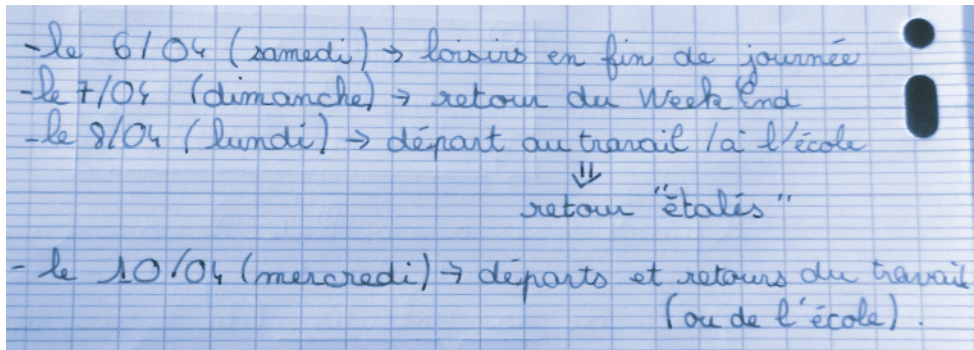 -le 6/04 (samedi) → loisirs en fin de journée
-le 7/04 (dimanche) → retour du Week End
-le 8/04 (lundi) → départ au travail /à l'école
⇓
retour "étalés"
- le 10/04 (mercredi) → départs et retours du travail
(ou de l'école).